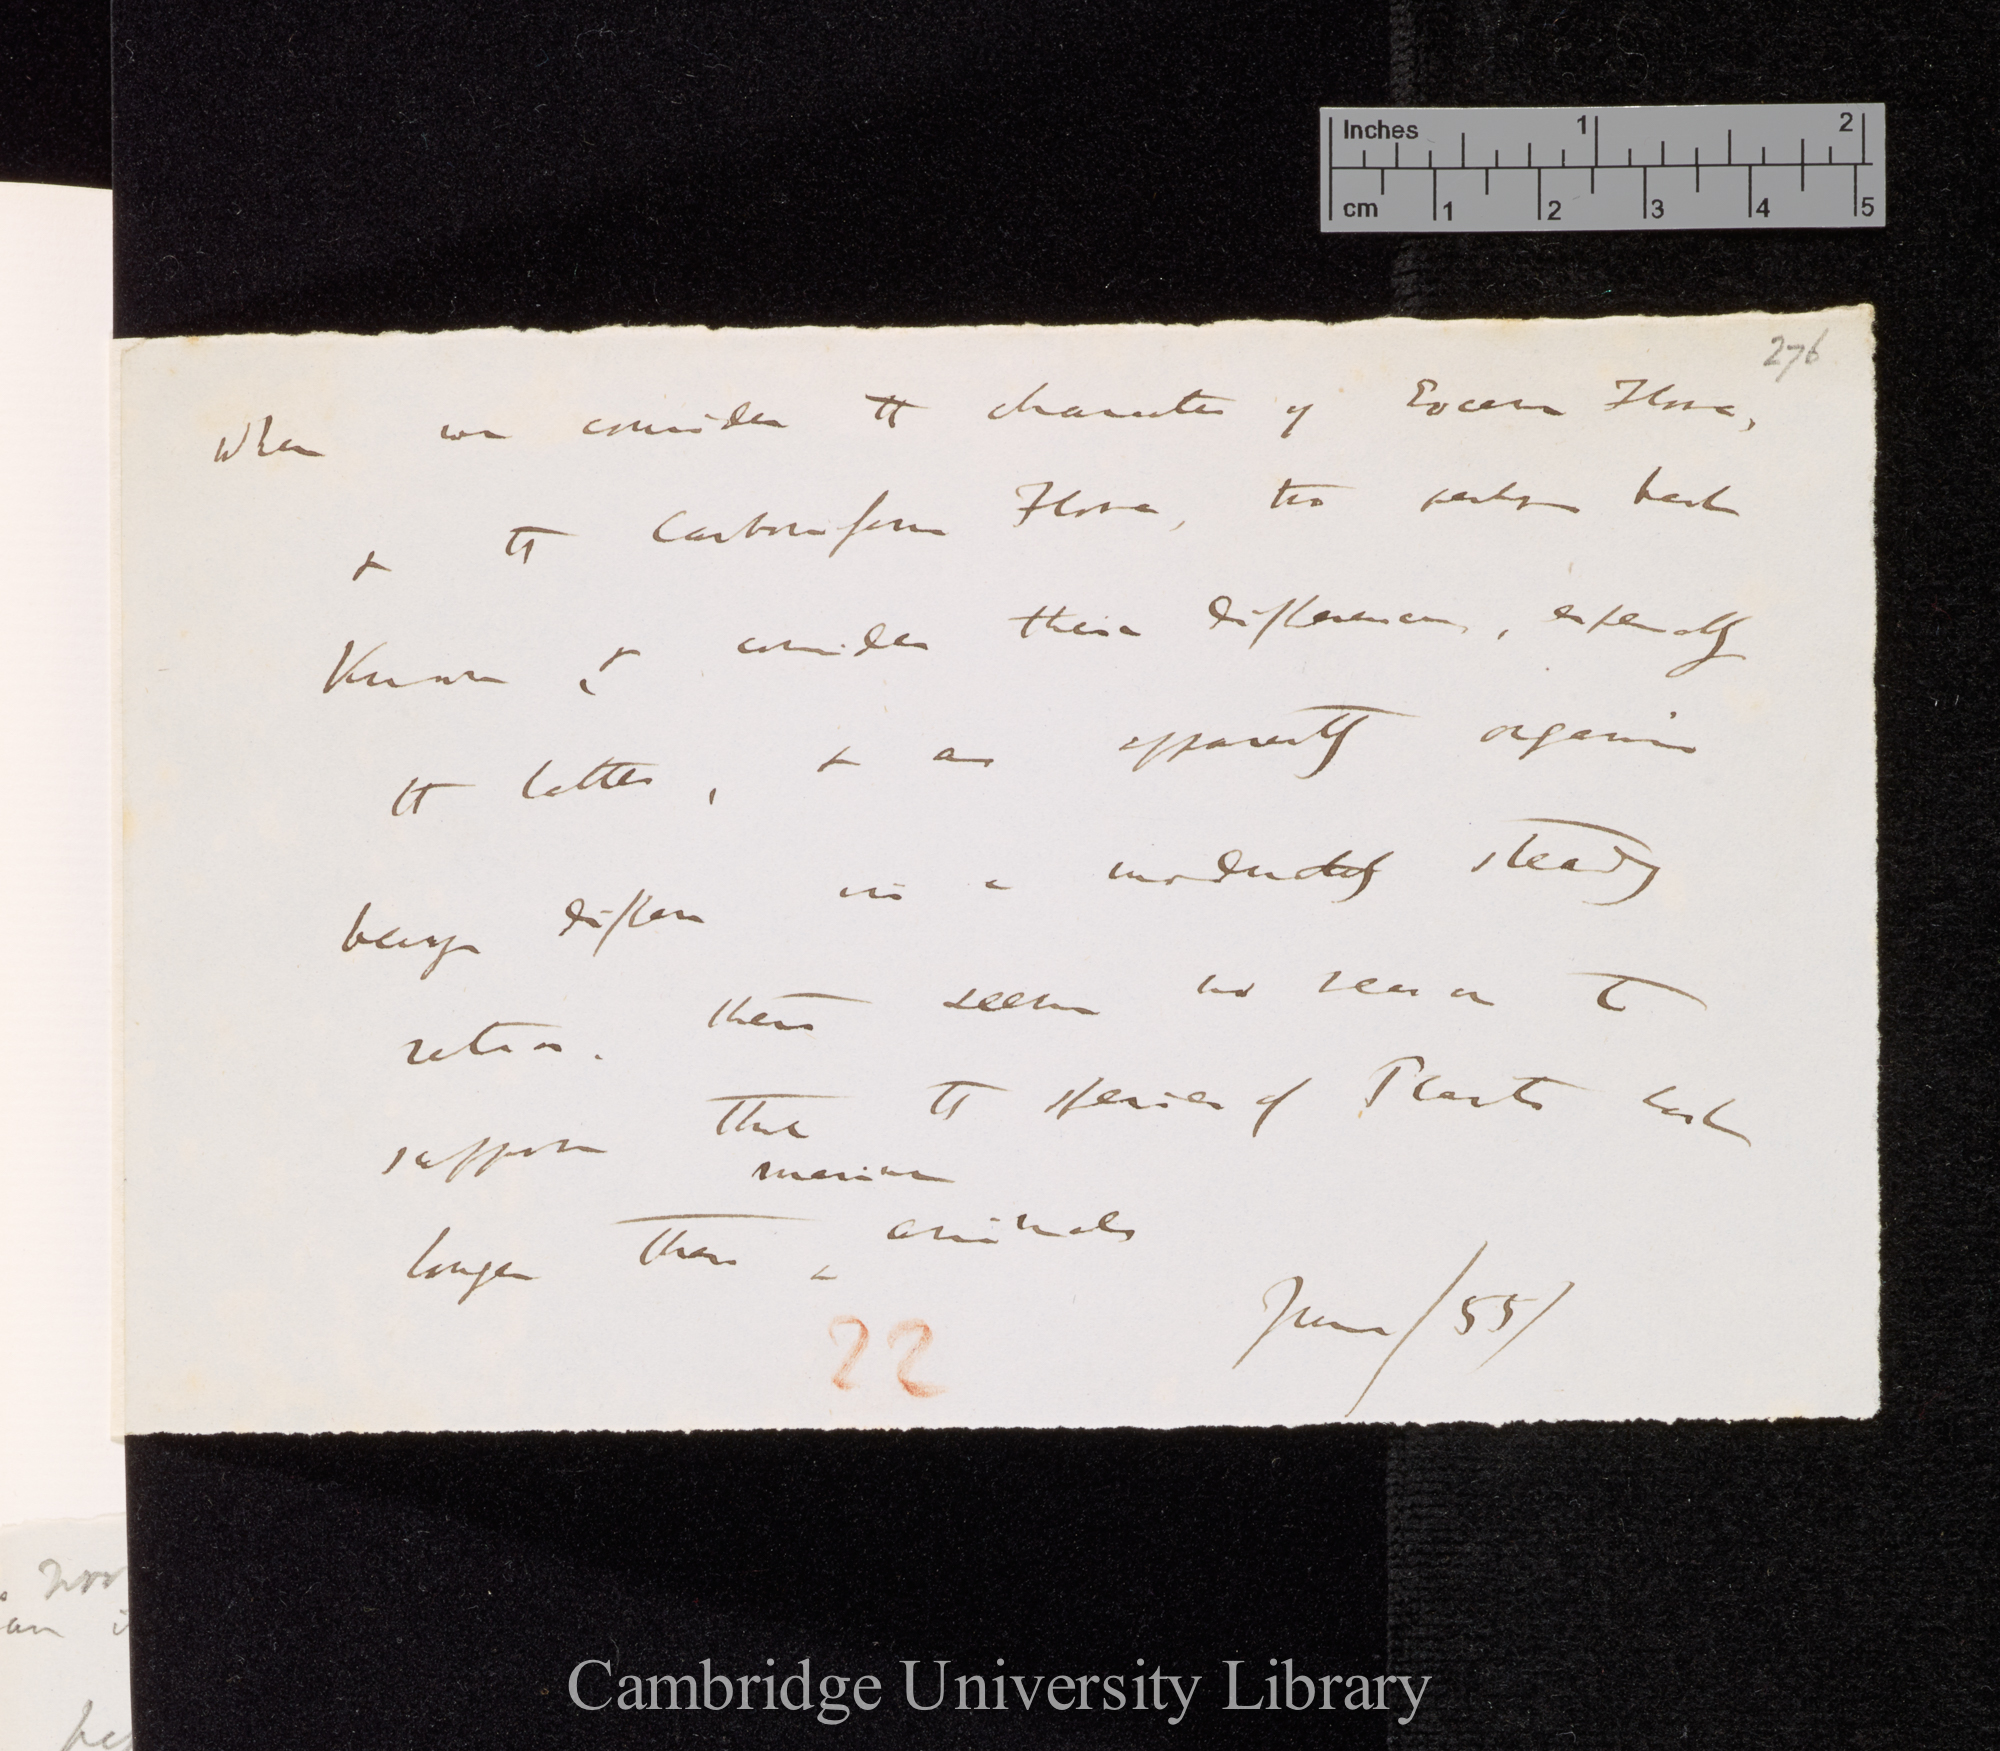 Inches 1 2
cm 1 2 3 4 5
276
When we consider the character of Eocene Flora,
& the Carboniferous Flora, two perhaps best
known & consider their differences, especially
the latter, & as apparently organic
beings differ in a moderately steady
ratio. there seems no reason to
suppose that the species of Plants last
marine
longer than ‸ animals
June/55/
22
Cambridge University Library